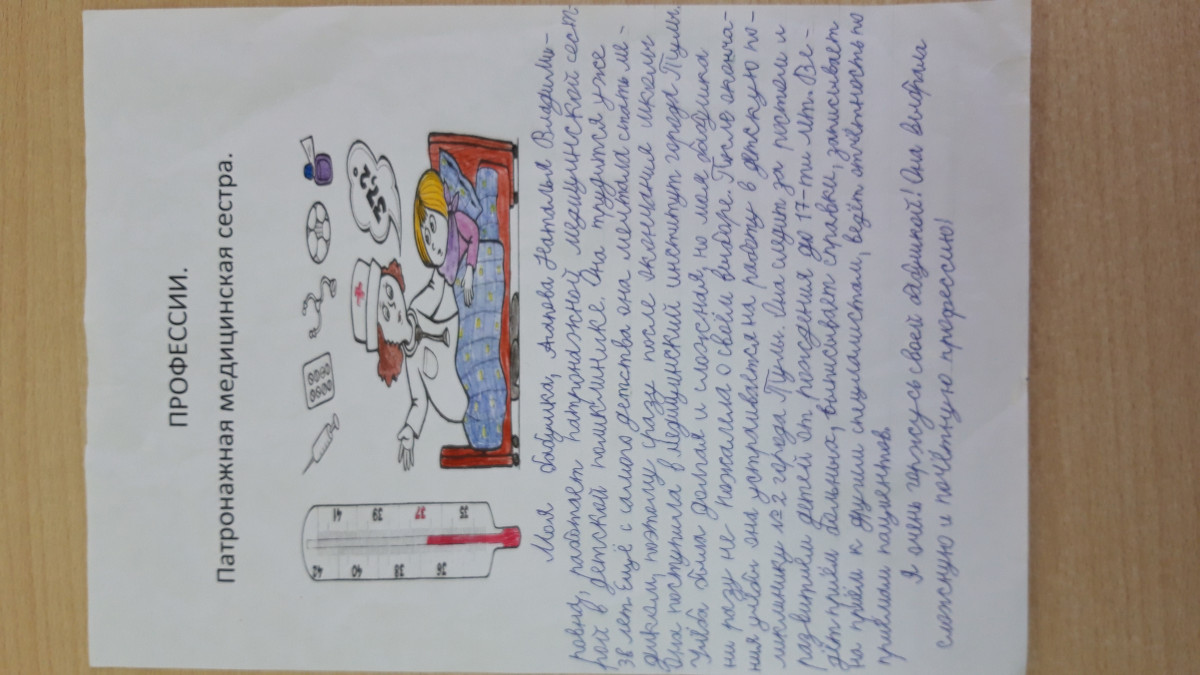 ПРОФЕССИИ.
Патронажная медицинская сестра.
37,2
42
41
40
39
38
37
36
35
Моя бабушка, Агапова Наталья Владими-
ровна, работает патронажной медицинской сест-
рой в детской поликлинике. Она трудится уже
38 лет. Ещё с самого детства она мечтала стать ме-
диком, поэтому сразу после окончания школы
Она поступила в медицинский институт города Тулы.
Учёба была долгая и сложная, но моя бабушка
ни разу не пожалела о своём выборе. После оконча-
ния учёбы она устраивается на работу в детскую по-
ликлинику №2 города Тулы. Она следит за ростом и
развитием детей от рождения до 17-ти лет. Ве-
дёт приём больных, выписывает справки, записывает
на приём к другим специалистам, ведёт отчётность по
приёмам пациентов.
Я очень горжусь своей бабушкой! Она выбрала
сложную и почётную профессию!